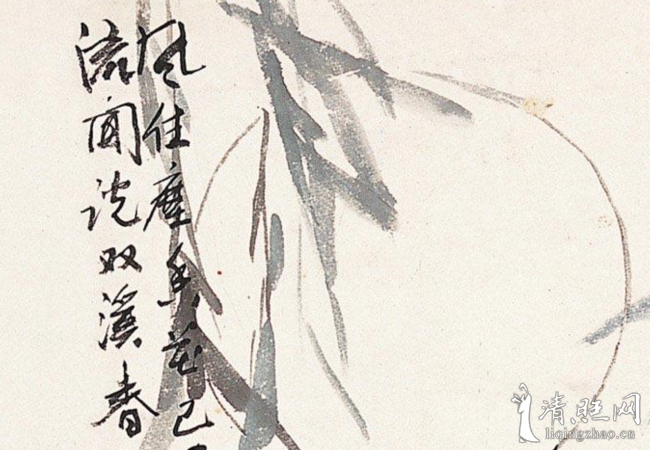 风住塵香花已
流闻说双溪春
清旺网
liqingzhao.cn